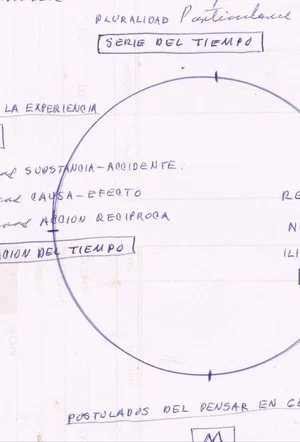 PLURALIDAD Particulares
SERIE DEL TIEMPO
LA EXPERIENCIA
SUBSTANCIA-ACCIDENTE
CAUSA-EFECTO
RE
ACCION RECIPROCA
N
CION DEL TIEMPO
ILI
POSTULADOS DEL PENSAR EN G
M